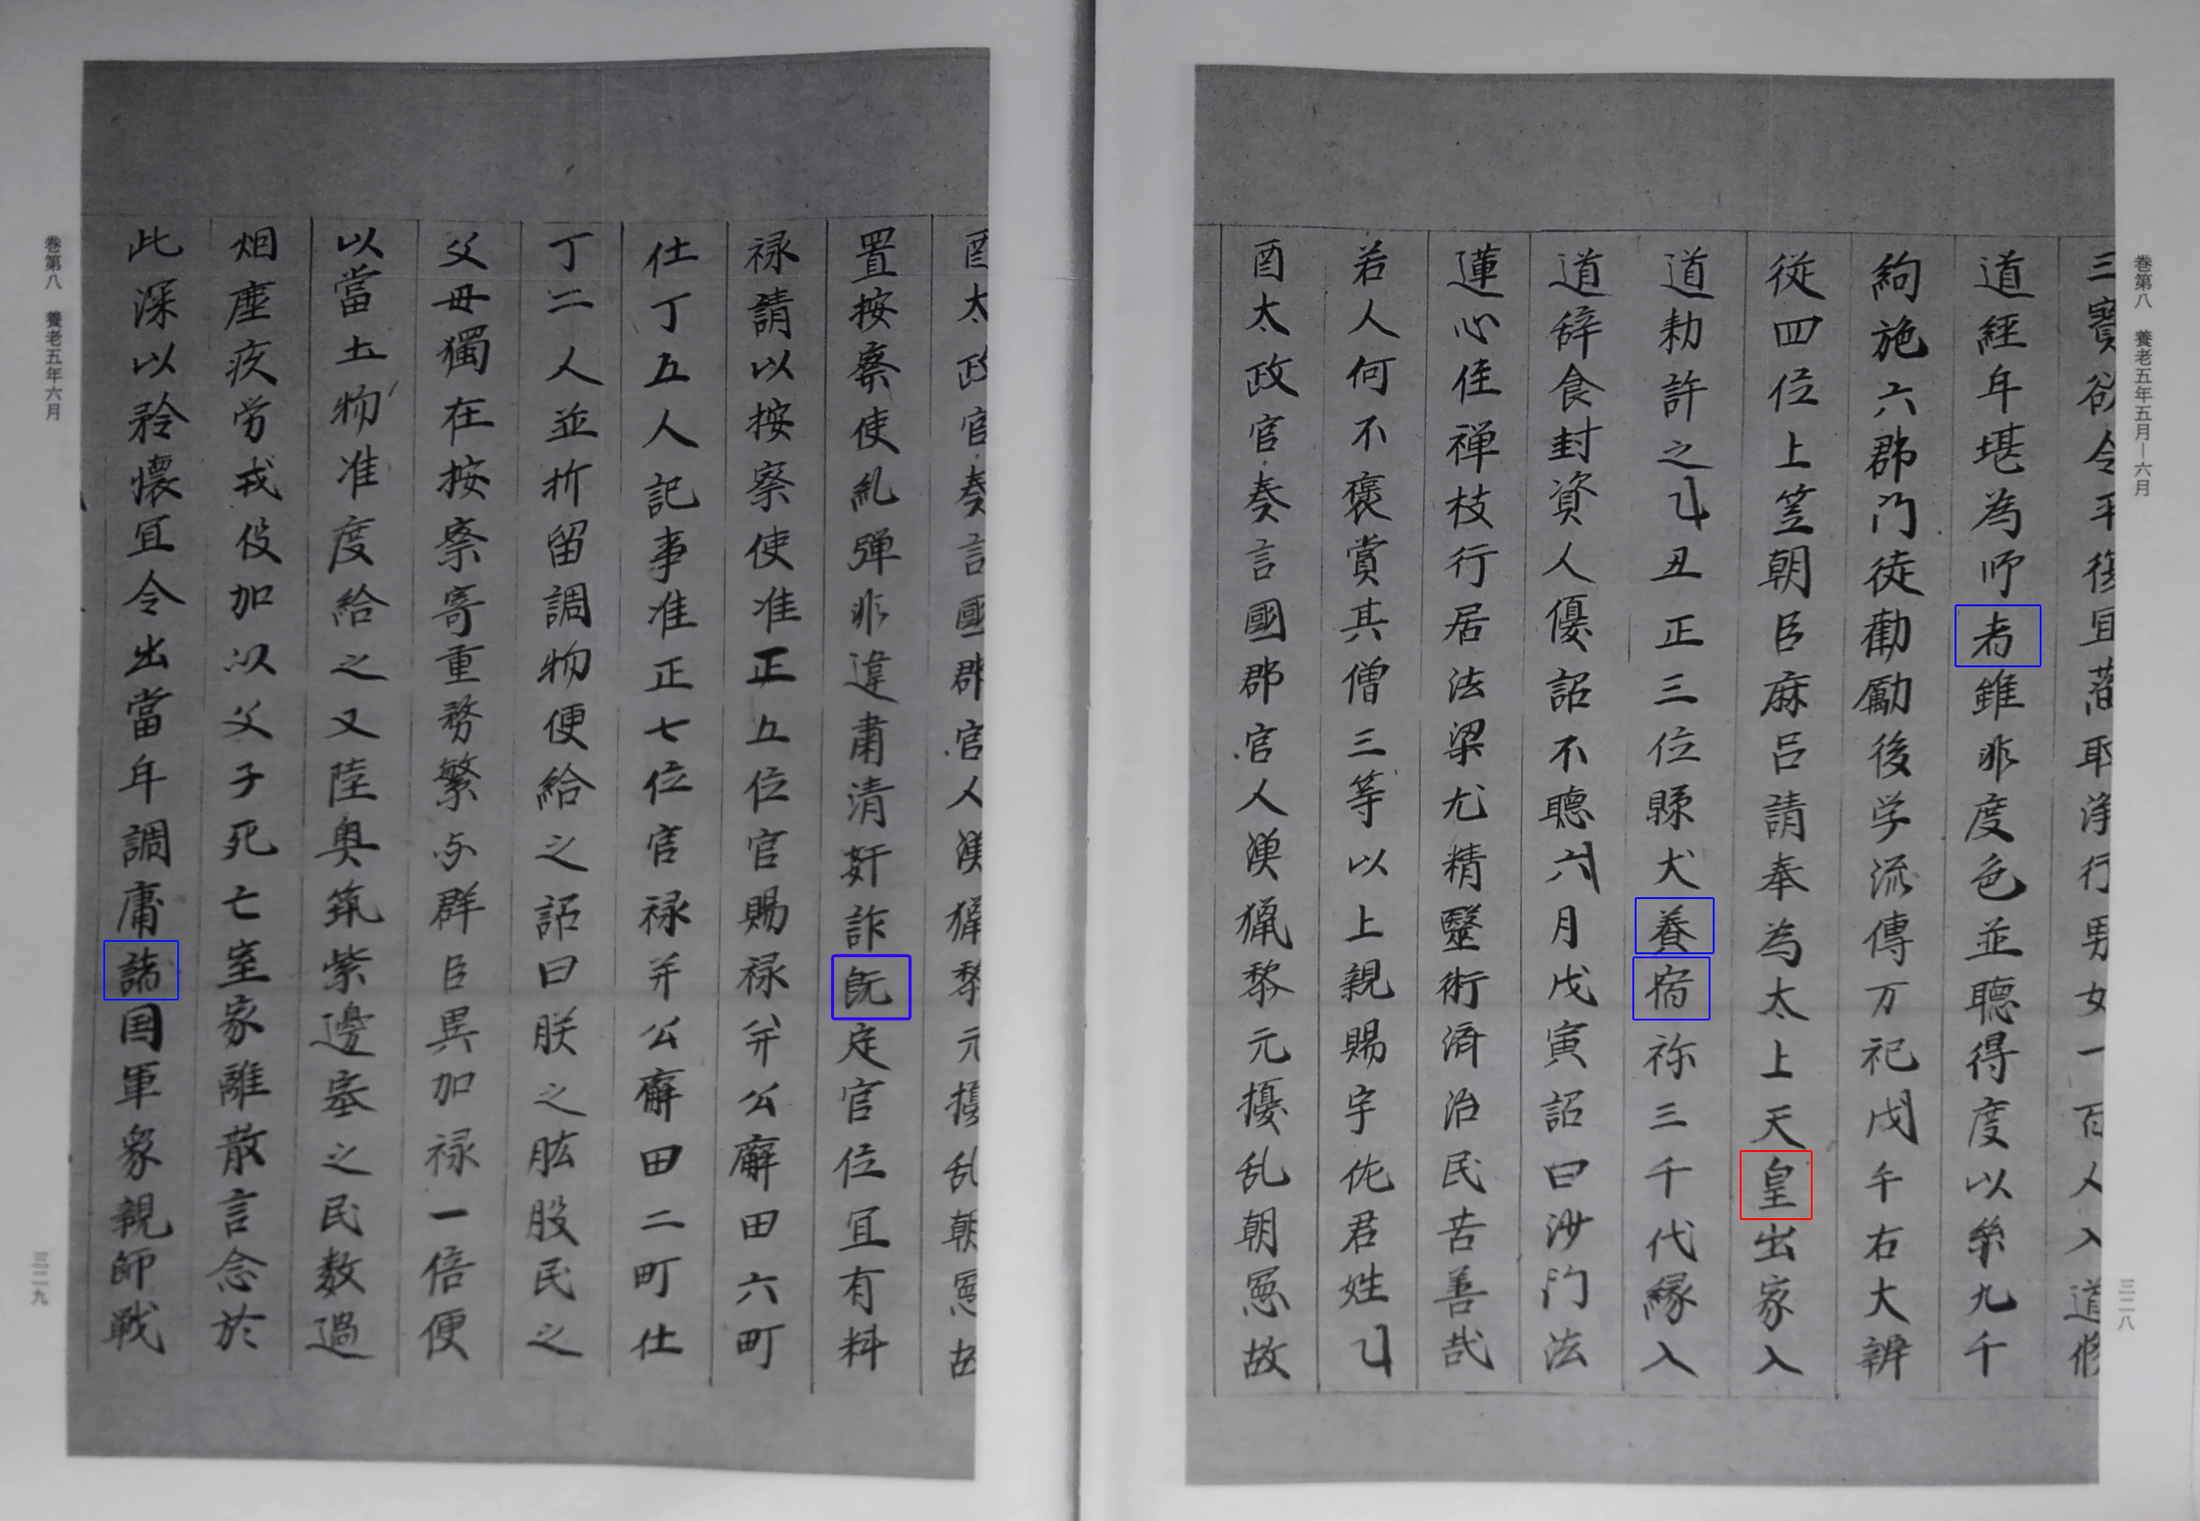 巻第八　養老五年五月―六月
三寶欲令平復宜蕳取浄行男女一百人入道脩
道経年堪為師者雖非度色並聴得度以糸九千
絇施六郡門徒勸勵後学流傳万祀戊午右大辨
従四位上笠朝臣麻呂請奉為太上天皇出家入
道勅許之乙丑正三位縣犬養宿祢三千代縁入
道辞食封資人優詔不聴六月戊寅詔曰沙門法
蓮心住禅枝行居法梁尤精毉術済治民苦善哉
若人何不褒賞其僧三等以上親賜宇佐君姓乙
酉太政官奏言國郡官人漁猟黎元擾乱朝憲故
三二八
巻第八　養老五年六月
酉太政官奏言國郡官人漁猟黎元擾乱朝憲故
置按察使糺弾非違粛清奸詐既定官位宜有料
禄請以按察使准正五位官賜禄并公廨田六町
仕丁五人記事准正七位官禄并公廨田二町仕
丁二人並折留調物便給之詔曰朕之肱股民之
父母獨在按察寄重務繁与群臣異加禄一倍便
以當土物准度給之又陸奥筑紫邊塞之民数遇
烟塵疾労戎役加以父子死亡室家離散言念於
此深以矜懐宜令出當年調庸諸国軍衆親帥戦
三二九